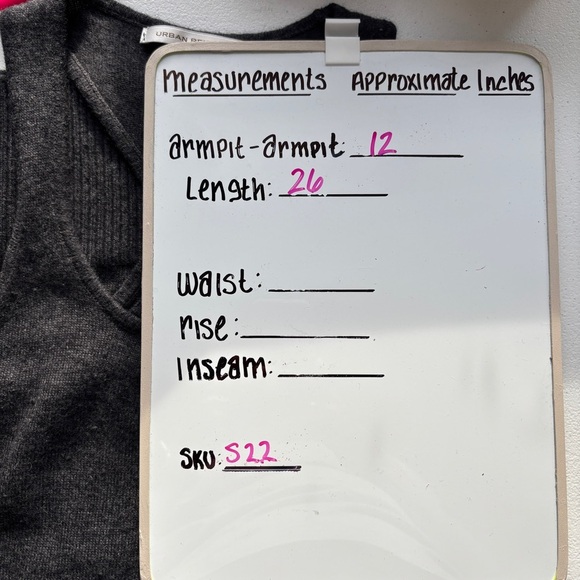 URBAN
measurements Approximate Inches
armpit-armpit: 12
Length: 26
waist:
rise:
Inseam:
SKU: S22